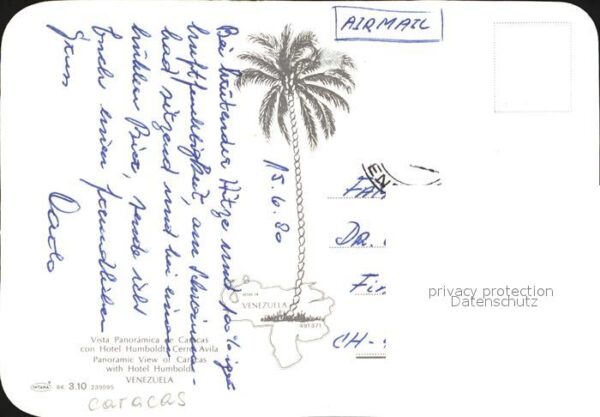 AIRMAIL
Bei brütender Hitze und 100%iger
Luftfeuchtigkeit, am Schwimm-
bad sitzend und bei einem
kühlen Bier, sende ich
Euch einen freundlichen
Gruss
15.6.80
EN
FA
DR.
Fi
CH-
privacy protection
Datenschutz
MADE IN
VENEZUELA
491371
Vista Panorámica de Caracas
con Hotel Humboldt, Cerro Avila
Panoramic View of Caracas
with Hotel Humboldt
VENEZUELA
84 3.10 239095
caracas